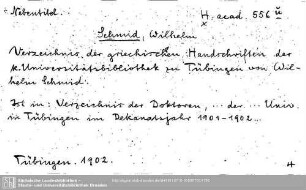 Nebentitel.
H. acad. 556 u
x
Schmid, Wilhelm
Verzeichnis der griechischen Handschriften der
K. Universitätsbibliothek zu Tübingen von Wil-
helm Schmid.
Ist in: Verzeichnis der Doktoren, ... der ... Univ.
in Tübingen im Dekanatsjahr 1901-1902...
Tübingen. 1902.
Sächsische Landesbibliothek -
Staats- und Universitätsbibliothek Dresden